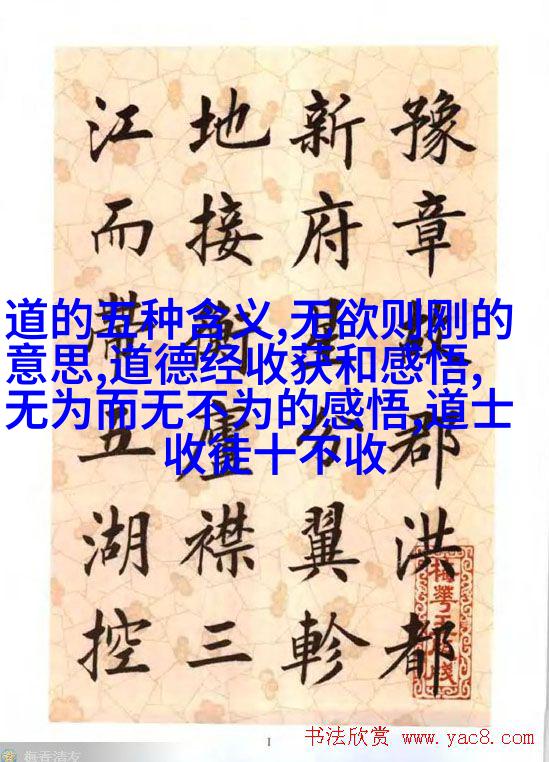 豫章故郡洪都
新府星分翼軫
地接衡廬襟三
江而帶五湖控
道的五种含义,无欲则刚的
意思,道德经收获和感悟,
无为而无不为的感悟,道士
收徒十不收
1
书法欣赏 www.yac8.com